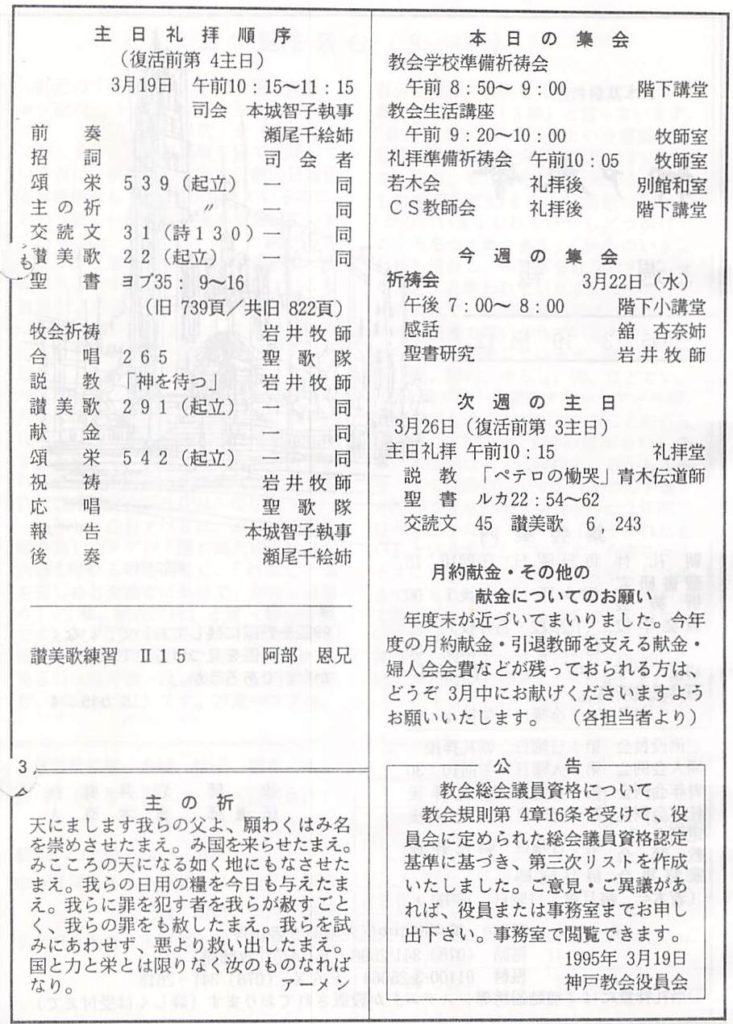 主日礼拝順序
（復活前第 4主日）
3月19日　午前10：15～11：15
司会　本城智子執事
前奏　瀬尾千絵姉
招詞　司会者
頌栄　５３９（起立）一同
主の祈　〃　一同
交読文　３１（詩１３０）一同
讃美歌　２２（起立）一同
聖書　ヨブ35：9～16
（旧 739頁／共旧 822頁）
牧会祈祷　岩井牧師
合唱　２６５　聖歌隊
説教　「神を待つ」　岩井牧師
讃美歌　２９１（起立）一同
献金　一同
頌栄　５４２（起立）一同
祝祷　岩井牧師
応唱　聖歌隊
報告　本城智子執事
後奏　瀬尾千絵姉
讃美歌練習　Ⅱ１５　阿部　恩兄
主の祈
天にまします我らの父よ、願わくはみ名
を崇めさせたまえ。み国を来らせたまえ。
みこころの天になる如く地にもなさせた
まえ。我らの日用の糧を今日も与えたま
え。我らに罪を犯す者を我らが赦すごと
く、我らの罪をも赦したまえ。我らを試
みにあわせず、悪より救い出したまえ。
国と力と栄とは限りなく汝のものなれば
なり。　アーメン
本日の集会
教会学校準備祈祷会
午前 8：50～ 9：00　階下講堂
教会生活講座
午前 9：20～10：00　牧師室
礼拝準備祈祷会　午前10：05　牧師室
若木会　礼拝後　別館和室
ＣＳ教師会　礼拝後　階下講堂
今週の集会
祈祷会　3月22日（水）
午後 7：00～ 8：00　階下小講堂
感話　舘　杏奈姉
聖書研究　岩井牧師
次週の主日
3月26日（復活前第 3主日）
主日礼拝　午前10：15　礼拝堂
説教　「ペテロの慟哭」青木伝道師
聖書　ルカ22：54～62
交読文　45　讃美歌　6，243
月約献金・その他の
献金についてのお願い
年度末が近づいてまいりました。今年
度の月約献金・引退教師を支える献金・
婦人会会費などが残っておられる方は、
どうぞ 3月中にお献げくださいますよう
お願いいたします。　（各担当者より）
公告
教会総会議員資格について
教会規則第 4章16条を受けて、役
員会に定められた総会議員資格認定
基準に基づき、第三次リストを作成
いたしました。ご意見・ご異議があ
れば、役員または事務室までお申し
出下さい。事務室で閲覧できます。
1995年 3月19日
神戸教会役員会